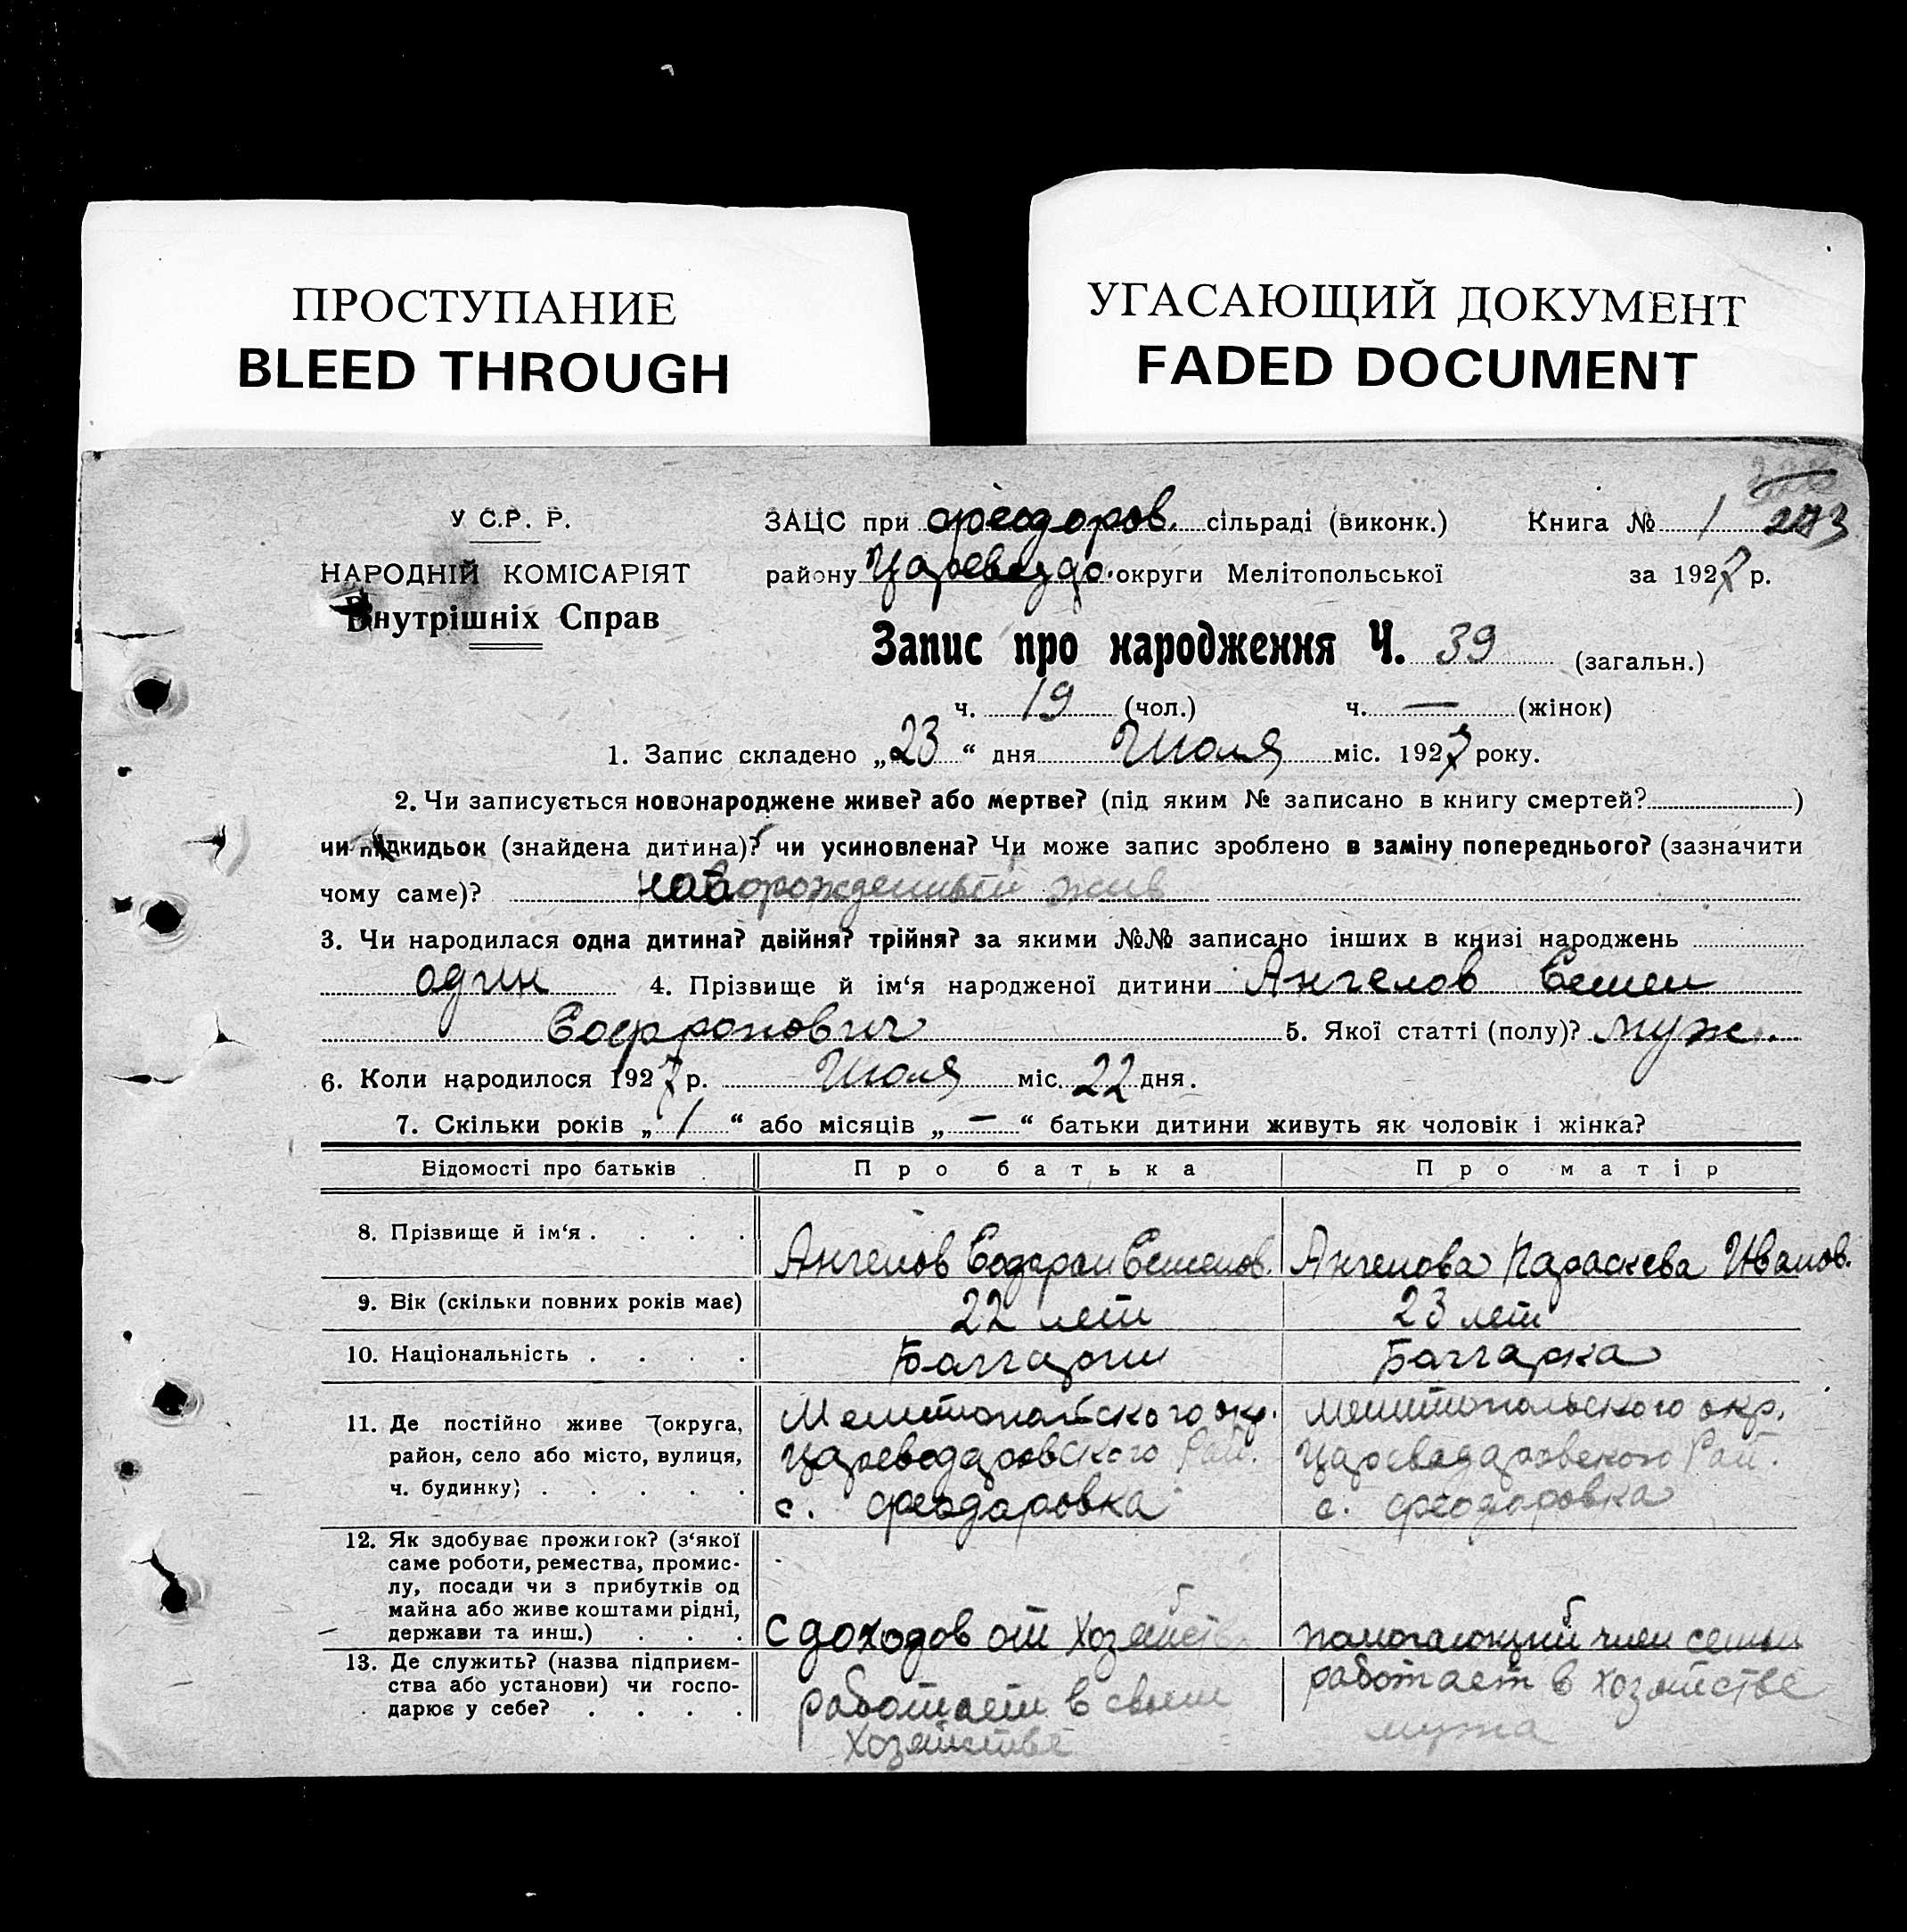 ПРОСТУПАНИЕ
BLEED THROUGH
УГАСАЮЩИЙ ДОКУМЕНТ
FADED DOCUMENT
У С.Р. Р.
НАРОДНІЙ КОМІСАРІЯТ
Внутрішніх Справ
ЗАЦС при Феодоров. сільраді (виконк.) Книга № 1 273
району Царевода. округи Мелітопольської за 1927 р.
Запис про народження Ч. 39 (загальн.)
ч. 19 (чол.) ч. — (жінок)
1. Запис складено „23“ дня Июля міс. 1927 року.
2. Чи записується новонароджене живе? або мертве? (під яким № записано в книгу смертей? )
чи підкидьок (знайдена дитина)? чи усиновлена? Чи може запис зроблено в заміну попереднього? (зазначити
чому саме)? наворожденный жив
3. Чи народилася одна дитина? двійня? трійня? за якими №№ записано інших в книзі народжень
один 4. Прізвище й ім‘я народженої дитини Ангелов Семен
Софронович 5. Якої статті (полу)? муж.
6. Коли народилося 1927 р. Июля міс. 22 дня.
7. Скільки років „1“ або місяців „—“ батьки дитини живуть як чоловік і жінка?
Відомості про батьків Про батька Про матір
8. Прізвище й ім‘я . . . . Ангелов Семенов. Ангелова Параскева Иванов.
9. Вік (скільки повних років має) 22 лет 23 лет
10. Національність . . . . Болгарин Болгарка
11. Де постійно живе (округа, Мелитопольского окр. Мелитопольского окр.
район, село або місто, вулиця, Цареводаровского Рай. Цареводаровского Рай.
ч. будинку) . . . . . с. Феодаровка с. Феодаровка
12. Як здобуває прожиток? (з‘якої
саме роботи, ремества, промис-
лу, посади чи з прибутків од
майна або живе коштами рідні,
держави та инш.) . . . с доходов от хозяйства помогающий член семьи
13. Де служить? (назва підприєм-
ства або установи) чи госпо-
дарює у себе? . . . . работает в своем работает в хозяйстве
хозяйстве мужа